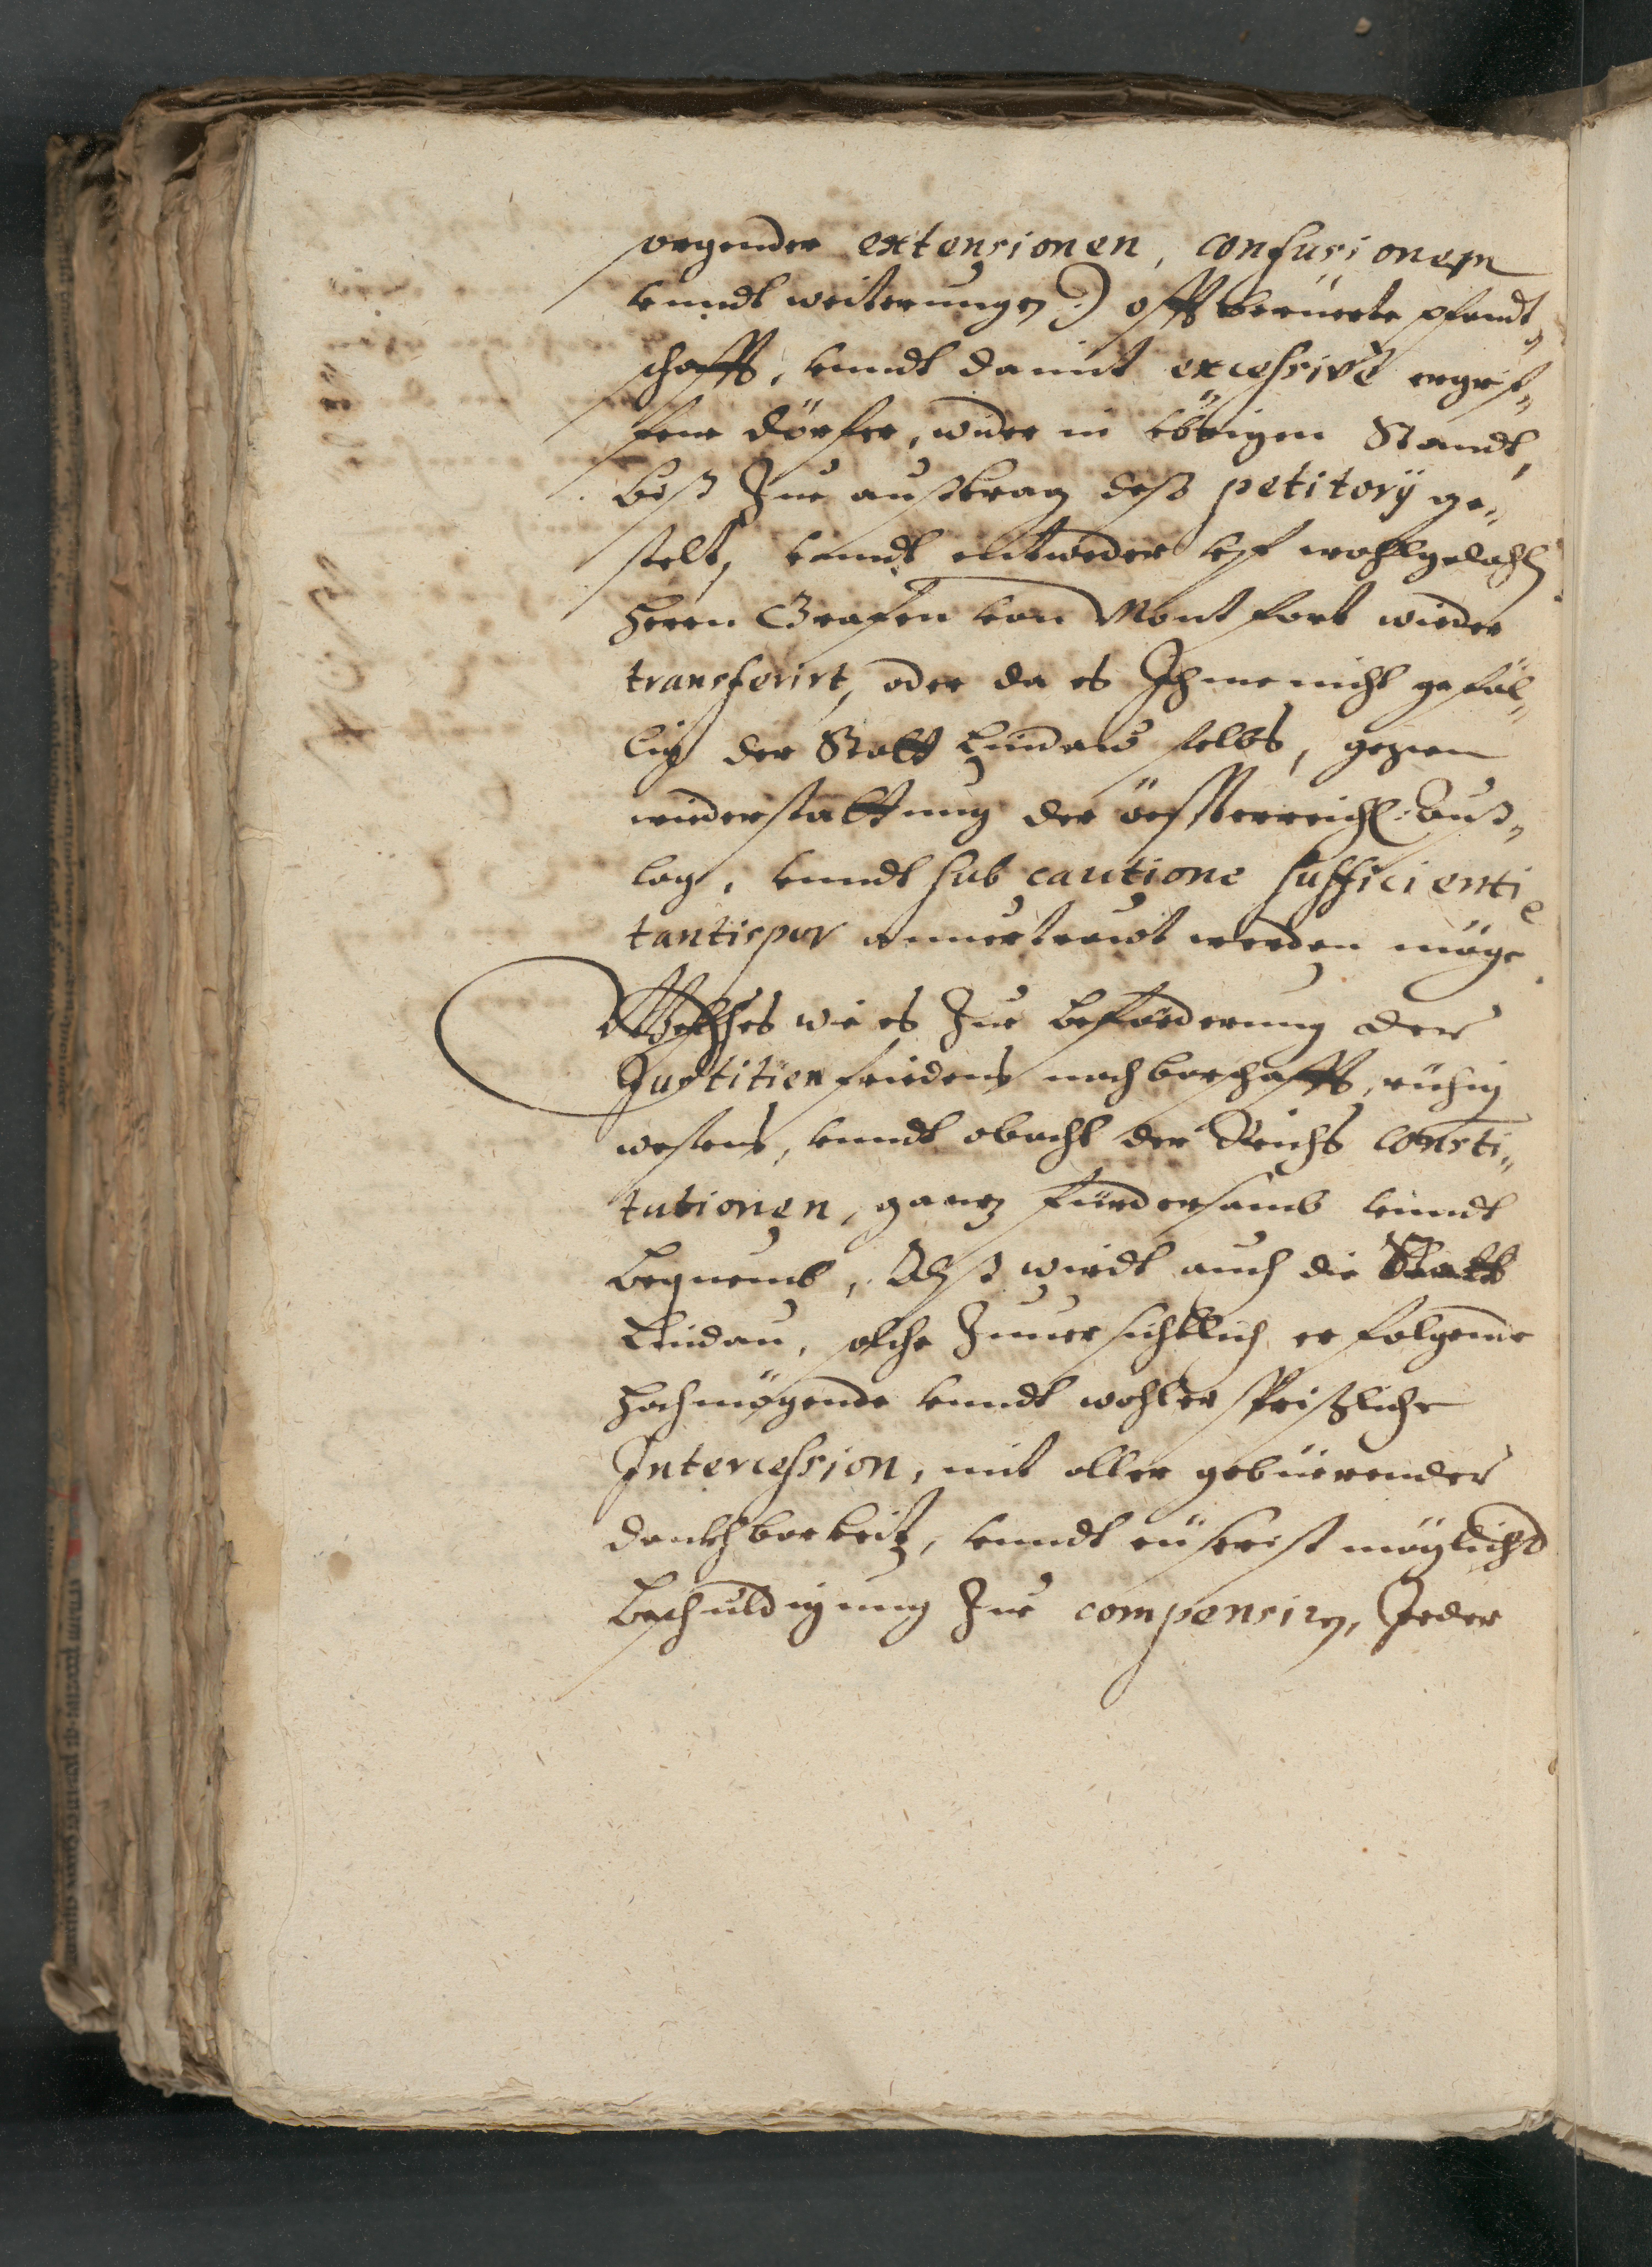 sorgender extensionen, confusionem
vnndt weiterungen :) offtberüerte pfandt„
schafft, vnndt damit excessivè ergrif„
fene dörfer, wider in vörigen Standt,
biß Zue außtrag deß petitorij ge„
stelt, vnndt entweder vf wohlgedachten
Herrn Grafen von Montfort wieder
transferirt, oder da es Ihme nicht gefäl„
lig der Statt Lindaw selbs, gegen
widerstattung der össterreichl: Auß„
lag, vnndt sub cautione sufficienti
tantisper annvertrawt werden möge
Welches wie es Zue beförderung der
Justitien fridens nachbarschafft, rühig
wesens, vnndt obacht der Reichs consti„
tutionen, gantz fürdersamb vnndt
bequemb, Alß wirdt auch die Statt
Lindau, solche Zuuersichtlich erfolgende
hochmögende vnndt wohlersprießliche
Intercession, mit aller gebüerender
danckhbarkeit, vnndt eüserist möglichst
beschuldigung Zue compensirn, Jeder